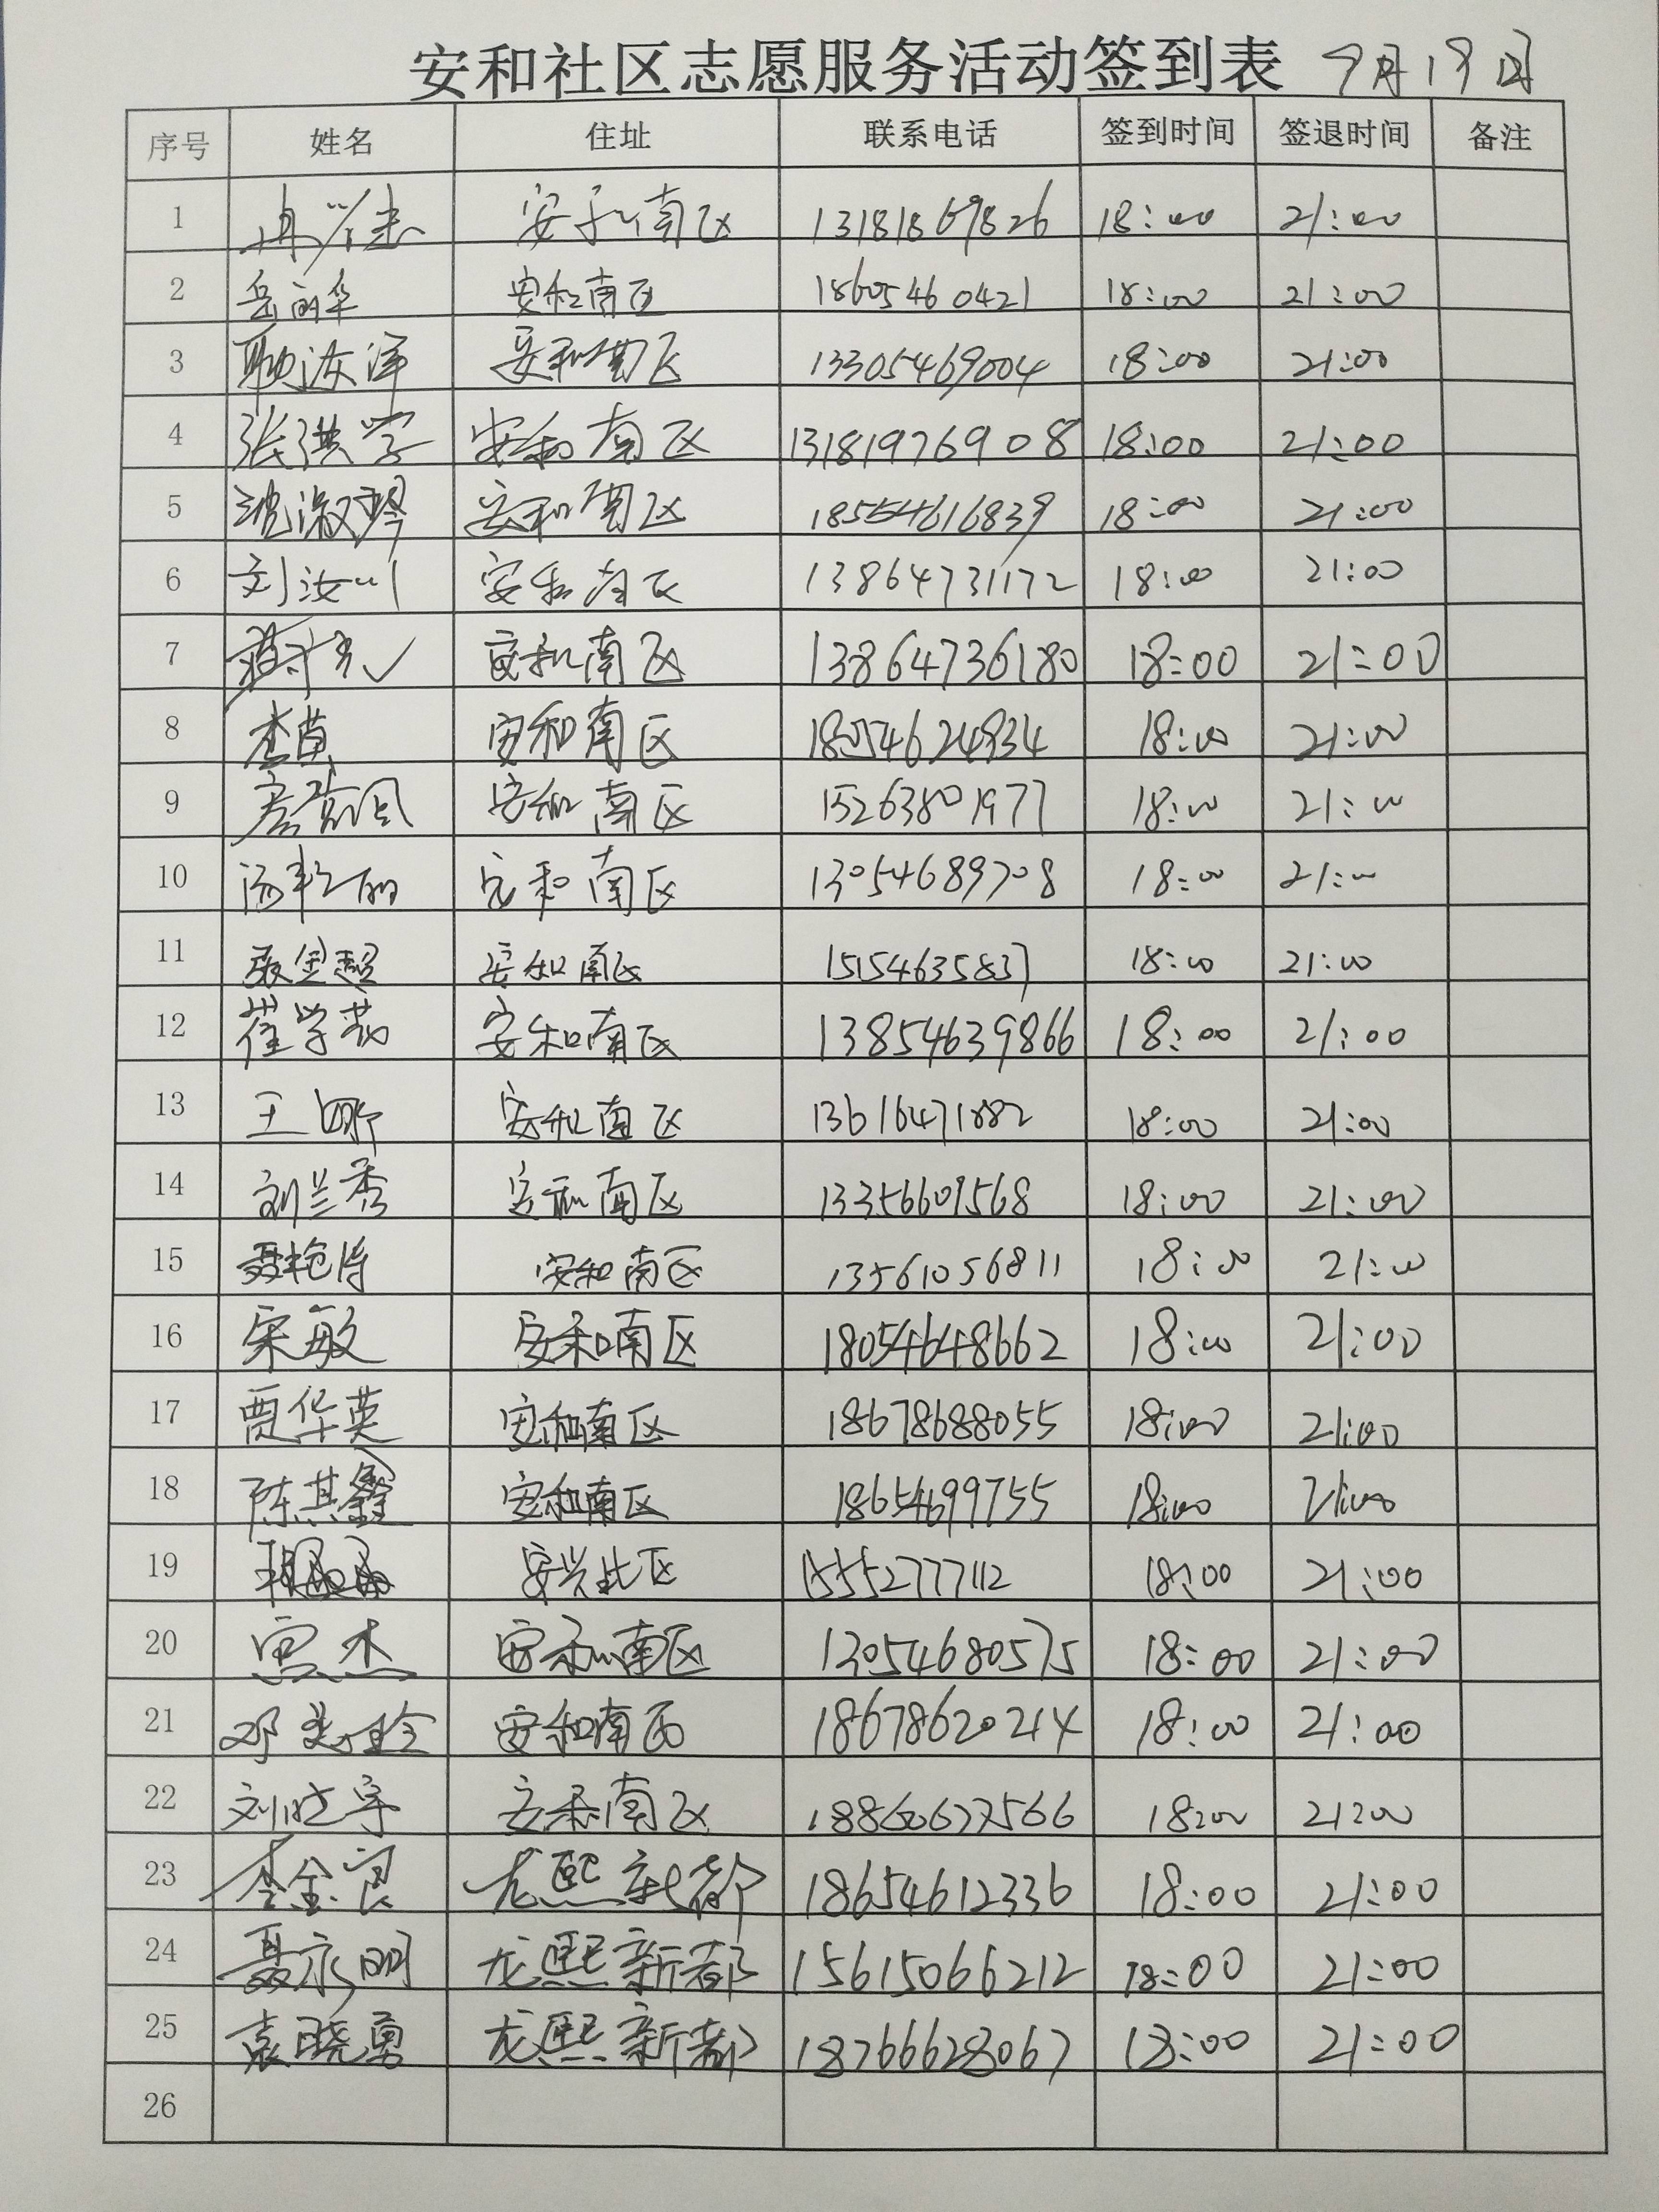 安和社区志愿服务活动签到表 9月19日
序号 姓名 住址 联系电话 签到时间 签退时间 备注
1 安和南区 13181869826 18:00 21:00
2 岳丽华 安和南区 18605460421 18:00 21:00
3 安和南区 13305469004 18:00 21:00
4 张洪学 安和南区 13181976908 18:00 21:00
5 沈淑琴 安和南区 18554616839 18:00 21:00
6 刘汝川 安和南区 13864731172 18:00 21:00
7 安和南区 13864736180 18:00 21:00
8 李苗 安和南区 18054624934 18:00 21:00
9 安和南区 15263801977 18:00 21:00
10 安和南区 13054689708 18:00 21:00
11 张金超 安和南区 15154635837 18:00 21:00
12 崔学茹 安和南区 13854639866 18:00 21:00
13 王娜 安和南区 13616471882 18:00 21:00
14 刘兰秀 安和南区 13356609568 18:00 21:00
15 安和南区 13561056811 18:00 21:00
16 宋敏 安和南区 18054648662 18:00 21:00
17 贾华英 安和南区 18678688055 18:00 21:00
18 陈其鑫 安和南区 18654699755 18:00 21:00
19 安兴北区 15552777112 18:00 21:00
20 安和南区 13054680575 18:00 21:00
21 邓美玲 安和南区 18678620214 18:00 21:00
22 刘晓宇 安和南区 18860677566 18:00 21:00
23 李金良 龙熙新都 18654612336 18:00 21:00
24 聂永明 龙熙新都 15615066212 18:00 21:00
25 袁晓勇 龙熙新都 18766628067 18:00 21:00
26